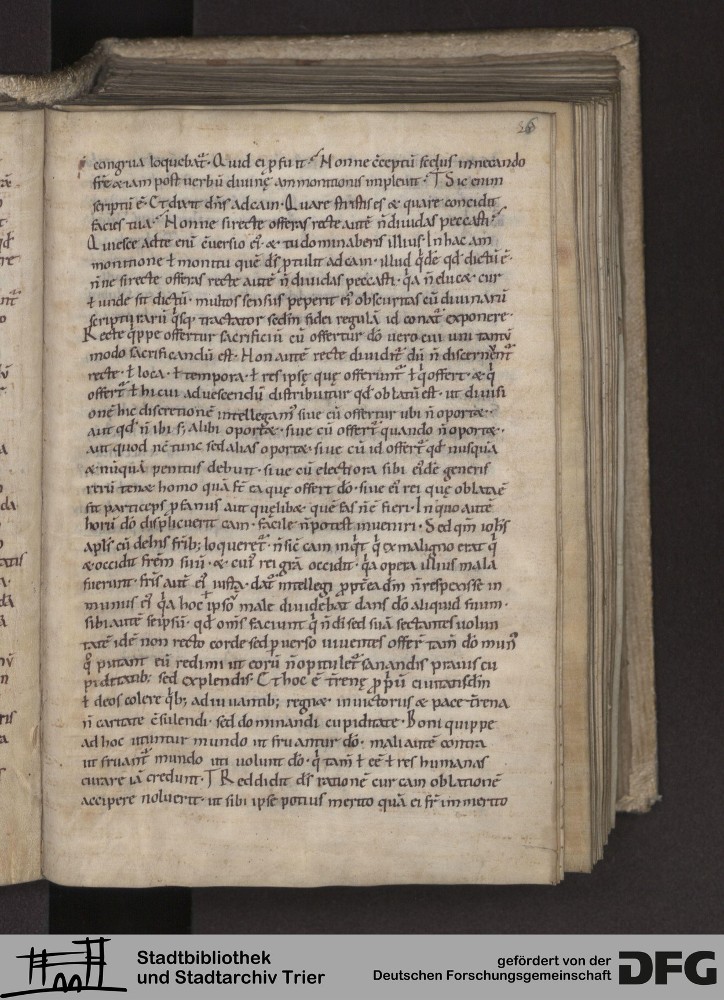 26
congrua loquebat᷑. Quid ei ꝓfuit. Nonne c̄ceptū scelus in necando
fr̄e & iam post uerbū diuinę ammonitionis impleuit. Sic enim
scriptū ē. Et dixit dn̄s ad cain. Quare tristis es & quare concidit
facies tua. Nonne si recte offeras recte autē n̄ diuidas peccasti.
Quiesce ad te enī c̄uersio ei᷒. & tu dominaberis illius. In hac am
monitione ł monitu quē ds̄ ꝓtulit ad cain. illud qͥdē qd̄ dictū ē.
n̄ne si recte offeras recte autē n̄ diuidas peccasti. qͥa n̄ elucæ cur
ł unde sit dictū. multos sensus peperit ei᷒ obscuritas cū diuinarū
scripturarū qͥsq; tractator scdm̄ fidei regulā id conat᷑ exponere.
Recte qͥppe offertur sacrificiū cū offertur dō uero cui uni tantū
modo sacrificandū est. Non autē recte diuidit᷑ dū n̄ discernunt᷑
recte. ł loca. ł tempora. ł res ipsę quę offerunt᷑ ł qͥ offert. & qͥ
offert᷑ ł hi cui ad uescendū distribuitur qd̄ oblatū est. ut diuisi
onē hic discretionē intellegam᷒ siue cū offertur ubi n̄ oportæ.
aut qd̄ n̄ ibi s; alibi oportæ. siue cū offert᷑ quando n̄ oportæ.
aut quod nc̄ tunc sed alias oportæ. siue cū id offert᷑ qd̄ nusquā
& nūquā penitus debuit. siue cū electiora sibi ei᷒dē generis
rerū tenæ homo quā st̄ ea quę offert dō. siue ei᷒ rei quę oblata ē
sit particeps ꝓfanus aut quęlibæ quē fas n̄ ē fieri. In quo autē
horū dō displicuerit cain. facile n̄ potest inueniri. Sed qm̄ ioh̄s
apl̄s cū de his fr̄ib; loqueret᷑. n̄ sic̄ cain inqͥt qͥ ex maligno erat qͥ
& occidit frēm suū. & cui᷒ rei grā occidit. qͥa opera illius mala
fuerunt. fr̄is autē ei᷒ iusta. dat᷑ intellegi ꝓpt̄ea dm̄ n̄ respexisse in
munus ei᷒ qͥa hoc ipso male diuidebat dans dō aliquid suum.
sibi autē seipsū. qd̄ om̄s faciunt qͥ n̄ di sed suā sectantes uolun
tatē id ē non recto corde sed ꝑuerso uiuentes offer̄ tam̄ dō mun᷒
qͦ putant eū redimi ut eorū n̄ opitulet᷑ sanandis prauis cu
piditatib; sed explendis. Et hoc ē t̄renę ꝓpͥū ciuitatis dm̄
ł deos colere qͥb; adiuuantib; regnæ in uictoriis & pace t̄rena
n̄ caritate c̄sulendi. sed dominandi cupiditate. Boni quippe
ad hoc utuntur mundo ut fruantur dō. mali autē contra
ut fruant᷑ mundo uti uolunt dō. qͥ tam̄ ł eē ł res humanas
curare iā credunt. Reddidit ds̄ rationē cur cain oblationē
accipere noluerit. ut sibi ipse potius merito quā ei fr̄i inmerito
Stadtbibliothek
und Stadtarchiv Trier
gefördert von der
Deutschen Forschungsgemeinschaft
DFG